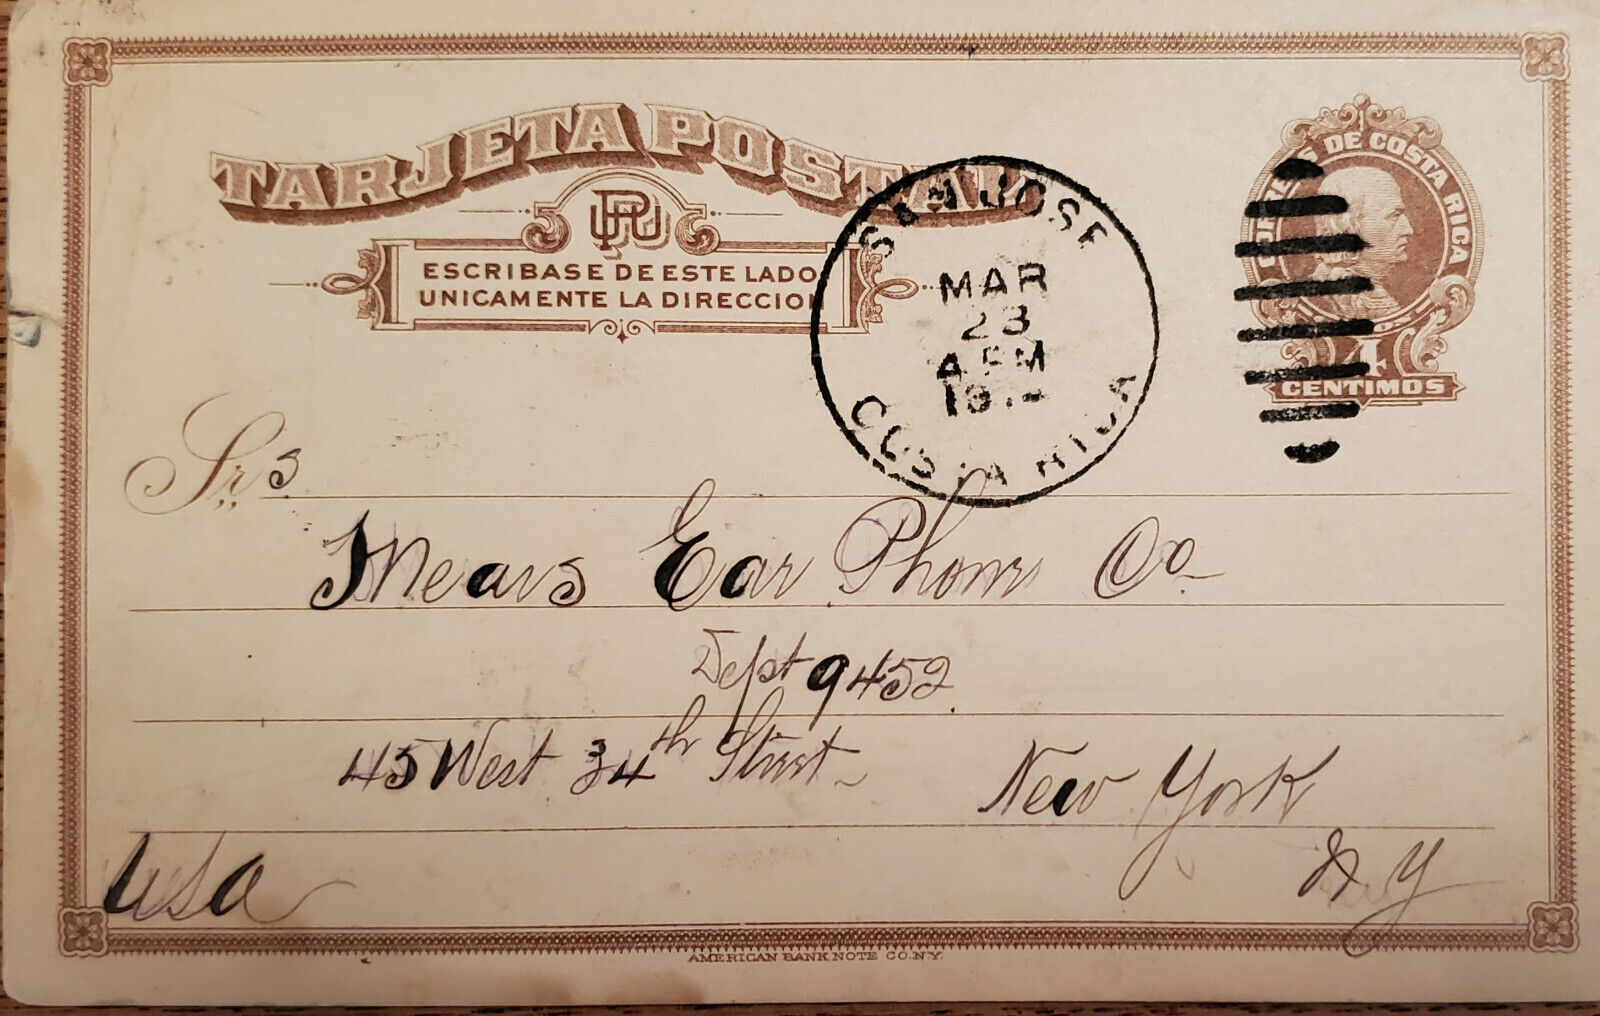 TARJETA POSTAL
UPU
ESCRIBASE DE ESTE LADO
UNICAMENTE LA DIRECCION
SAN JOSE
MAR
23
COSTA RICA
DE COSTA RICA
4
CENTIMOS
Srs
Mears Ear Phone Co
Dept 9452
45 West 34th Street
New York
N Y
USA
AMERICAN BANK NOTE CO. N.Y.